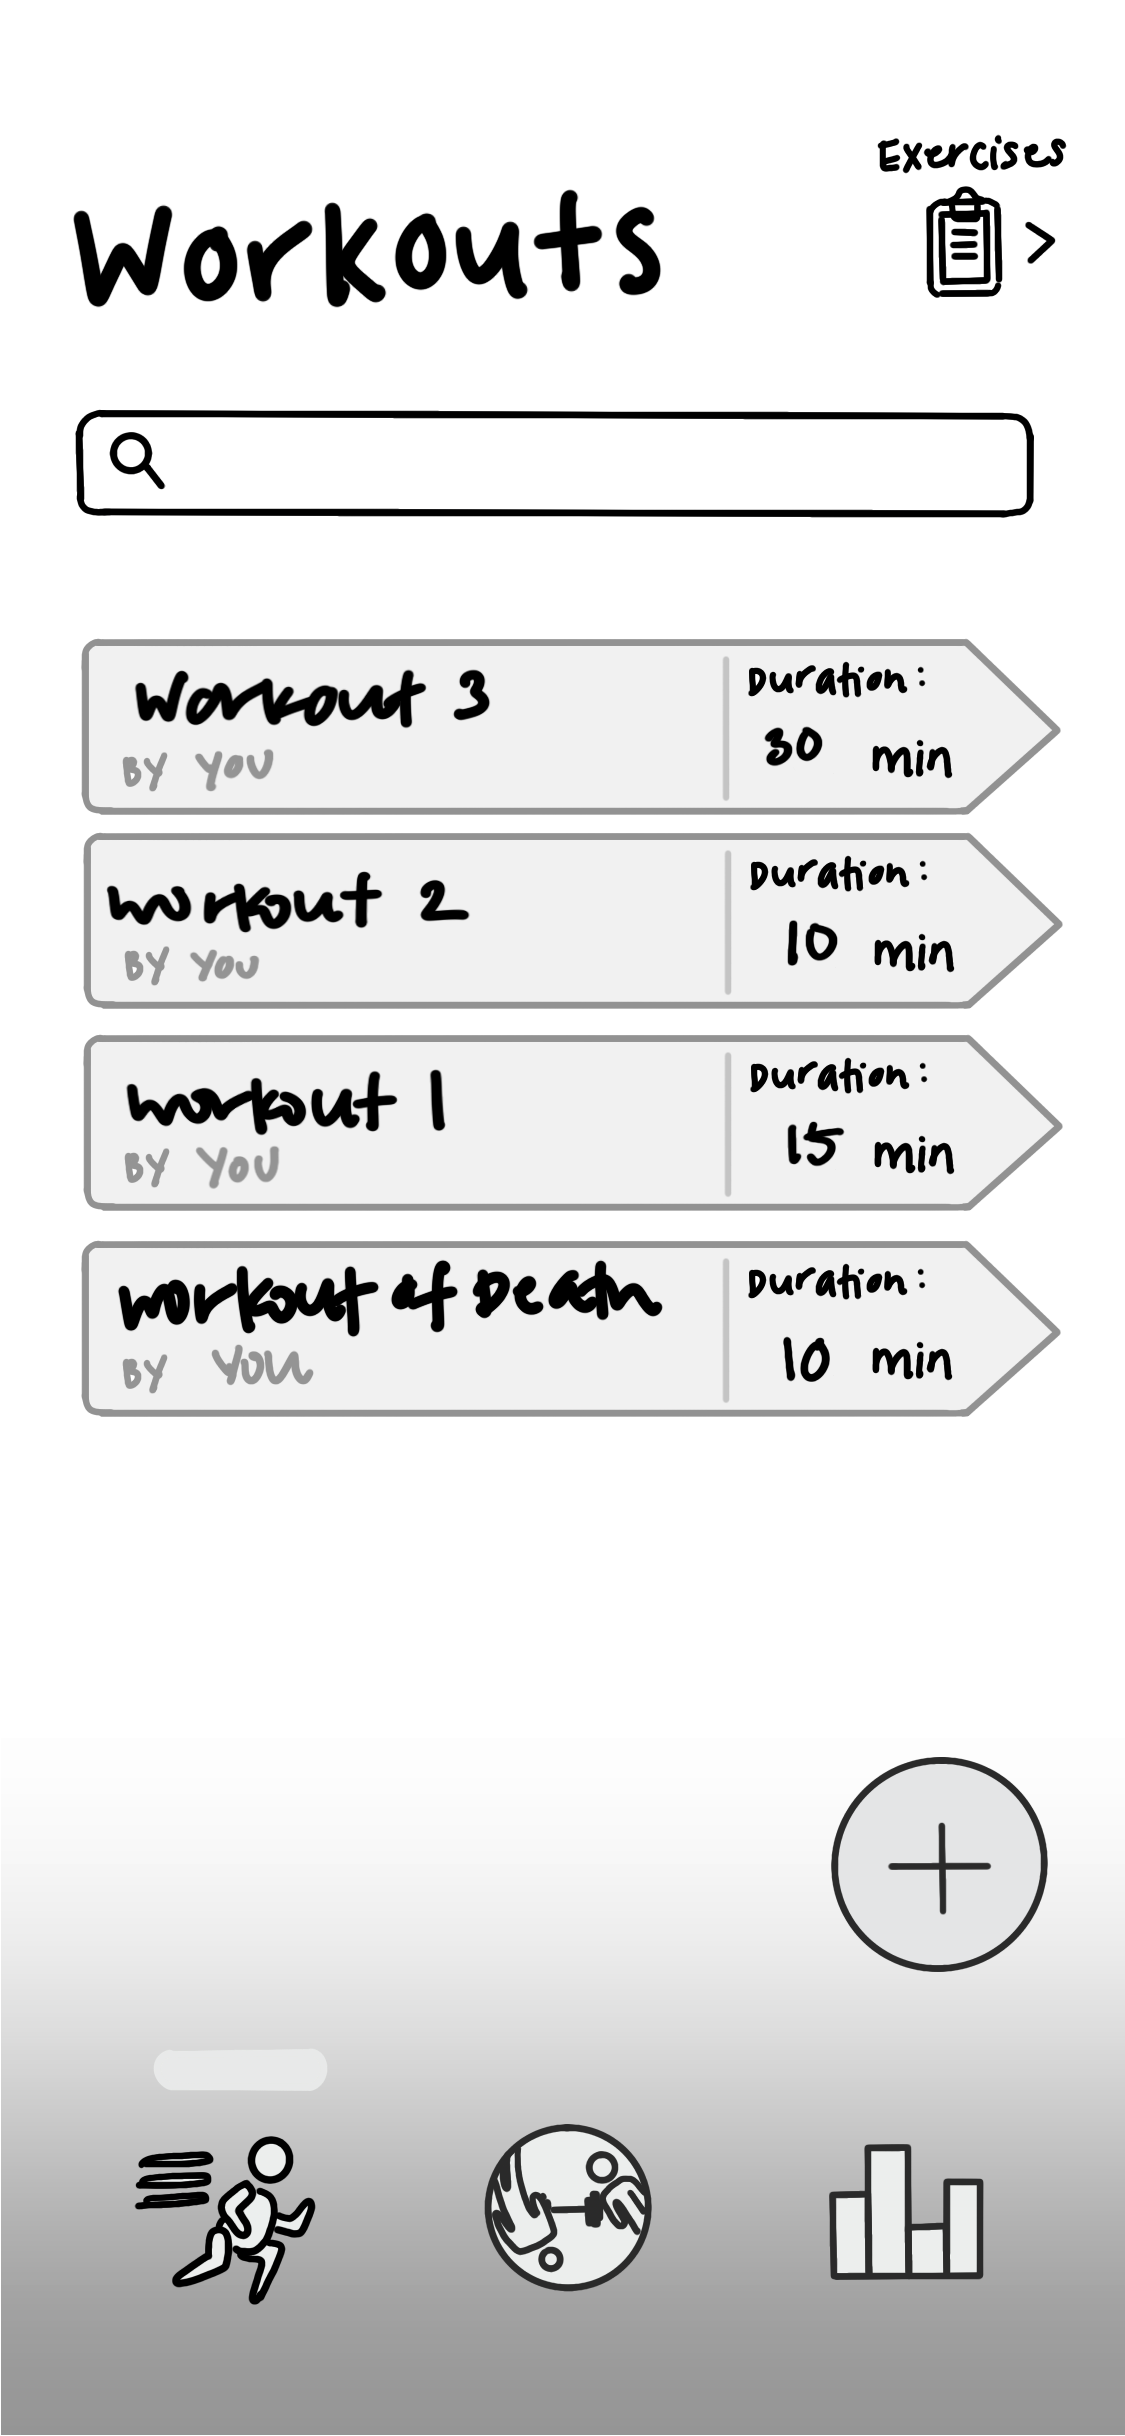 Exercises
Workouts
Workout 3
BY YOU
Duration:
30 min
workout 2
BY YOU
Duration:
10 min
workout 1
BY YOU
Duration:
15 min
workout of Death
BY YOU
Duration:
10 min